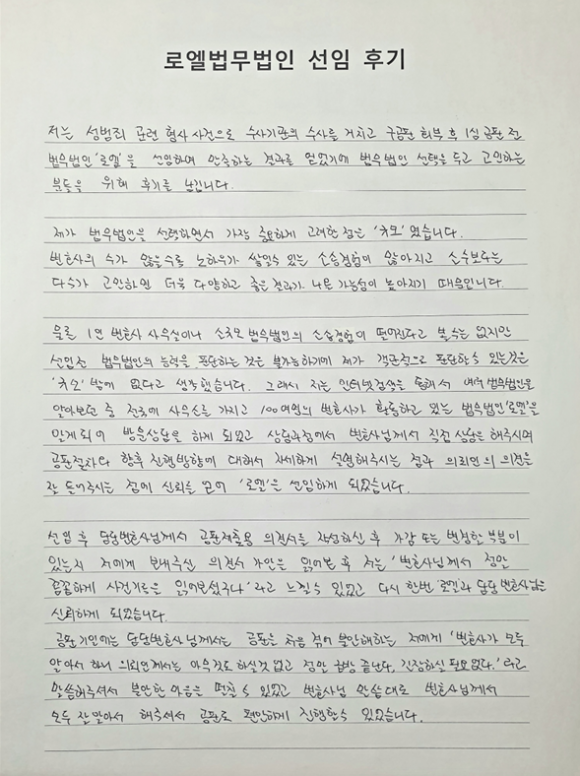 로엘법무법인 선임 후기
저는 성범죄 관련 형사 사건으로 수사기관의 수사를 거치고 구공판 회부 후 1심 공판 전
법무법인 '로엘'을 선임하여 만족하는 결과를 얻었기에 법무법인 선택을 두고 고민하는
분들을 위해 후기를 남깁니다.
제가 법무법인을 선택하면서 가장 중요하게 고려한 점은 '규모' 였습니다.
변호사의 수가 많을수록 노하우가 쌓일수 있는 소송경험이 많아지고 소수보다는
다수가 고민하면 더욱 다양하고 좋은 결과가 나올 가능성이 높아지기 때문입니다.
물론 1인 변호사 사무실이나 소규모 법무법인의 소송경험이 떨어진다고 볼수는 없지만
선임전 법무법인의 능력을 판단하는 것은 불가능하기에 제가 객관적으로 판단할수 있는것은
'규모' 밖에 없다고 생각했습니다. 그래서 저는 인터넷검색을 통해서 여러 법무법인을
알아보던 중 전국에 사무소를 가지고 100여명의 변호사가 활동하고 있는 법무법인 '로엘'을
알게되어 방문상담을 하게 되었고 상담과정에서 변호사님께서 직접 상담을 해주시며
공판절차와 향후 진행방향에 대해서 자세하게 설명해주시는 점과 의뢰인의 의견을
잘 들어주시는 점에 신뢰를 얻어 '로엘'을 선임하게 되었습니다.
선임 후 담당변호사님께서 공판제출용 의견서를 작성하신 후 가감 또는 변경할 부분이
있는지 저에게 보내주신 의견서 가안을 읽어본 후 저는 '변호사님께서 정말
꼼꼼하게 사건기록을 읽어보셨구나' 라고 느낄수 있었고 다시 한번 '로엘'과 담당 변호사님을
신뢰하게 되었습니다.
공판기일에는 담당변호사님께서는 공판을 처음 겪어 불안해하는 저에게 '변호사가 모두
알아서 하니 의뢰인께서는 아무것도 하실것 없고 정말 금방 끝난다. 긴장하실 필요없다.' 라고
말씀해주셔서 불안한 마음을 떨칠 수 있었고 변호사님 말씀대로 변호사님께서
모두 잘 알아서 해주셔서 공판도 편안하게 진행할수 있었습니다.